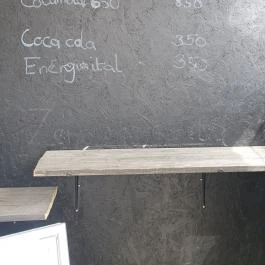 650 850
Coca cola 350
Energuital 350